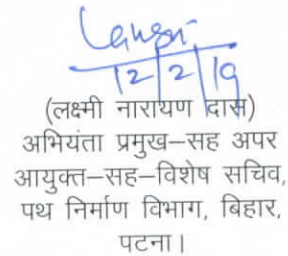 12/2/19
(लक्ष्मी नारायण दास)
अभियंता प्रमुख–सह अपर
आयुक्त–सह–विशेष सचिव,
पथ निर्माण विभाग, बिहार,
पटना।